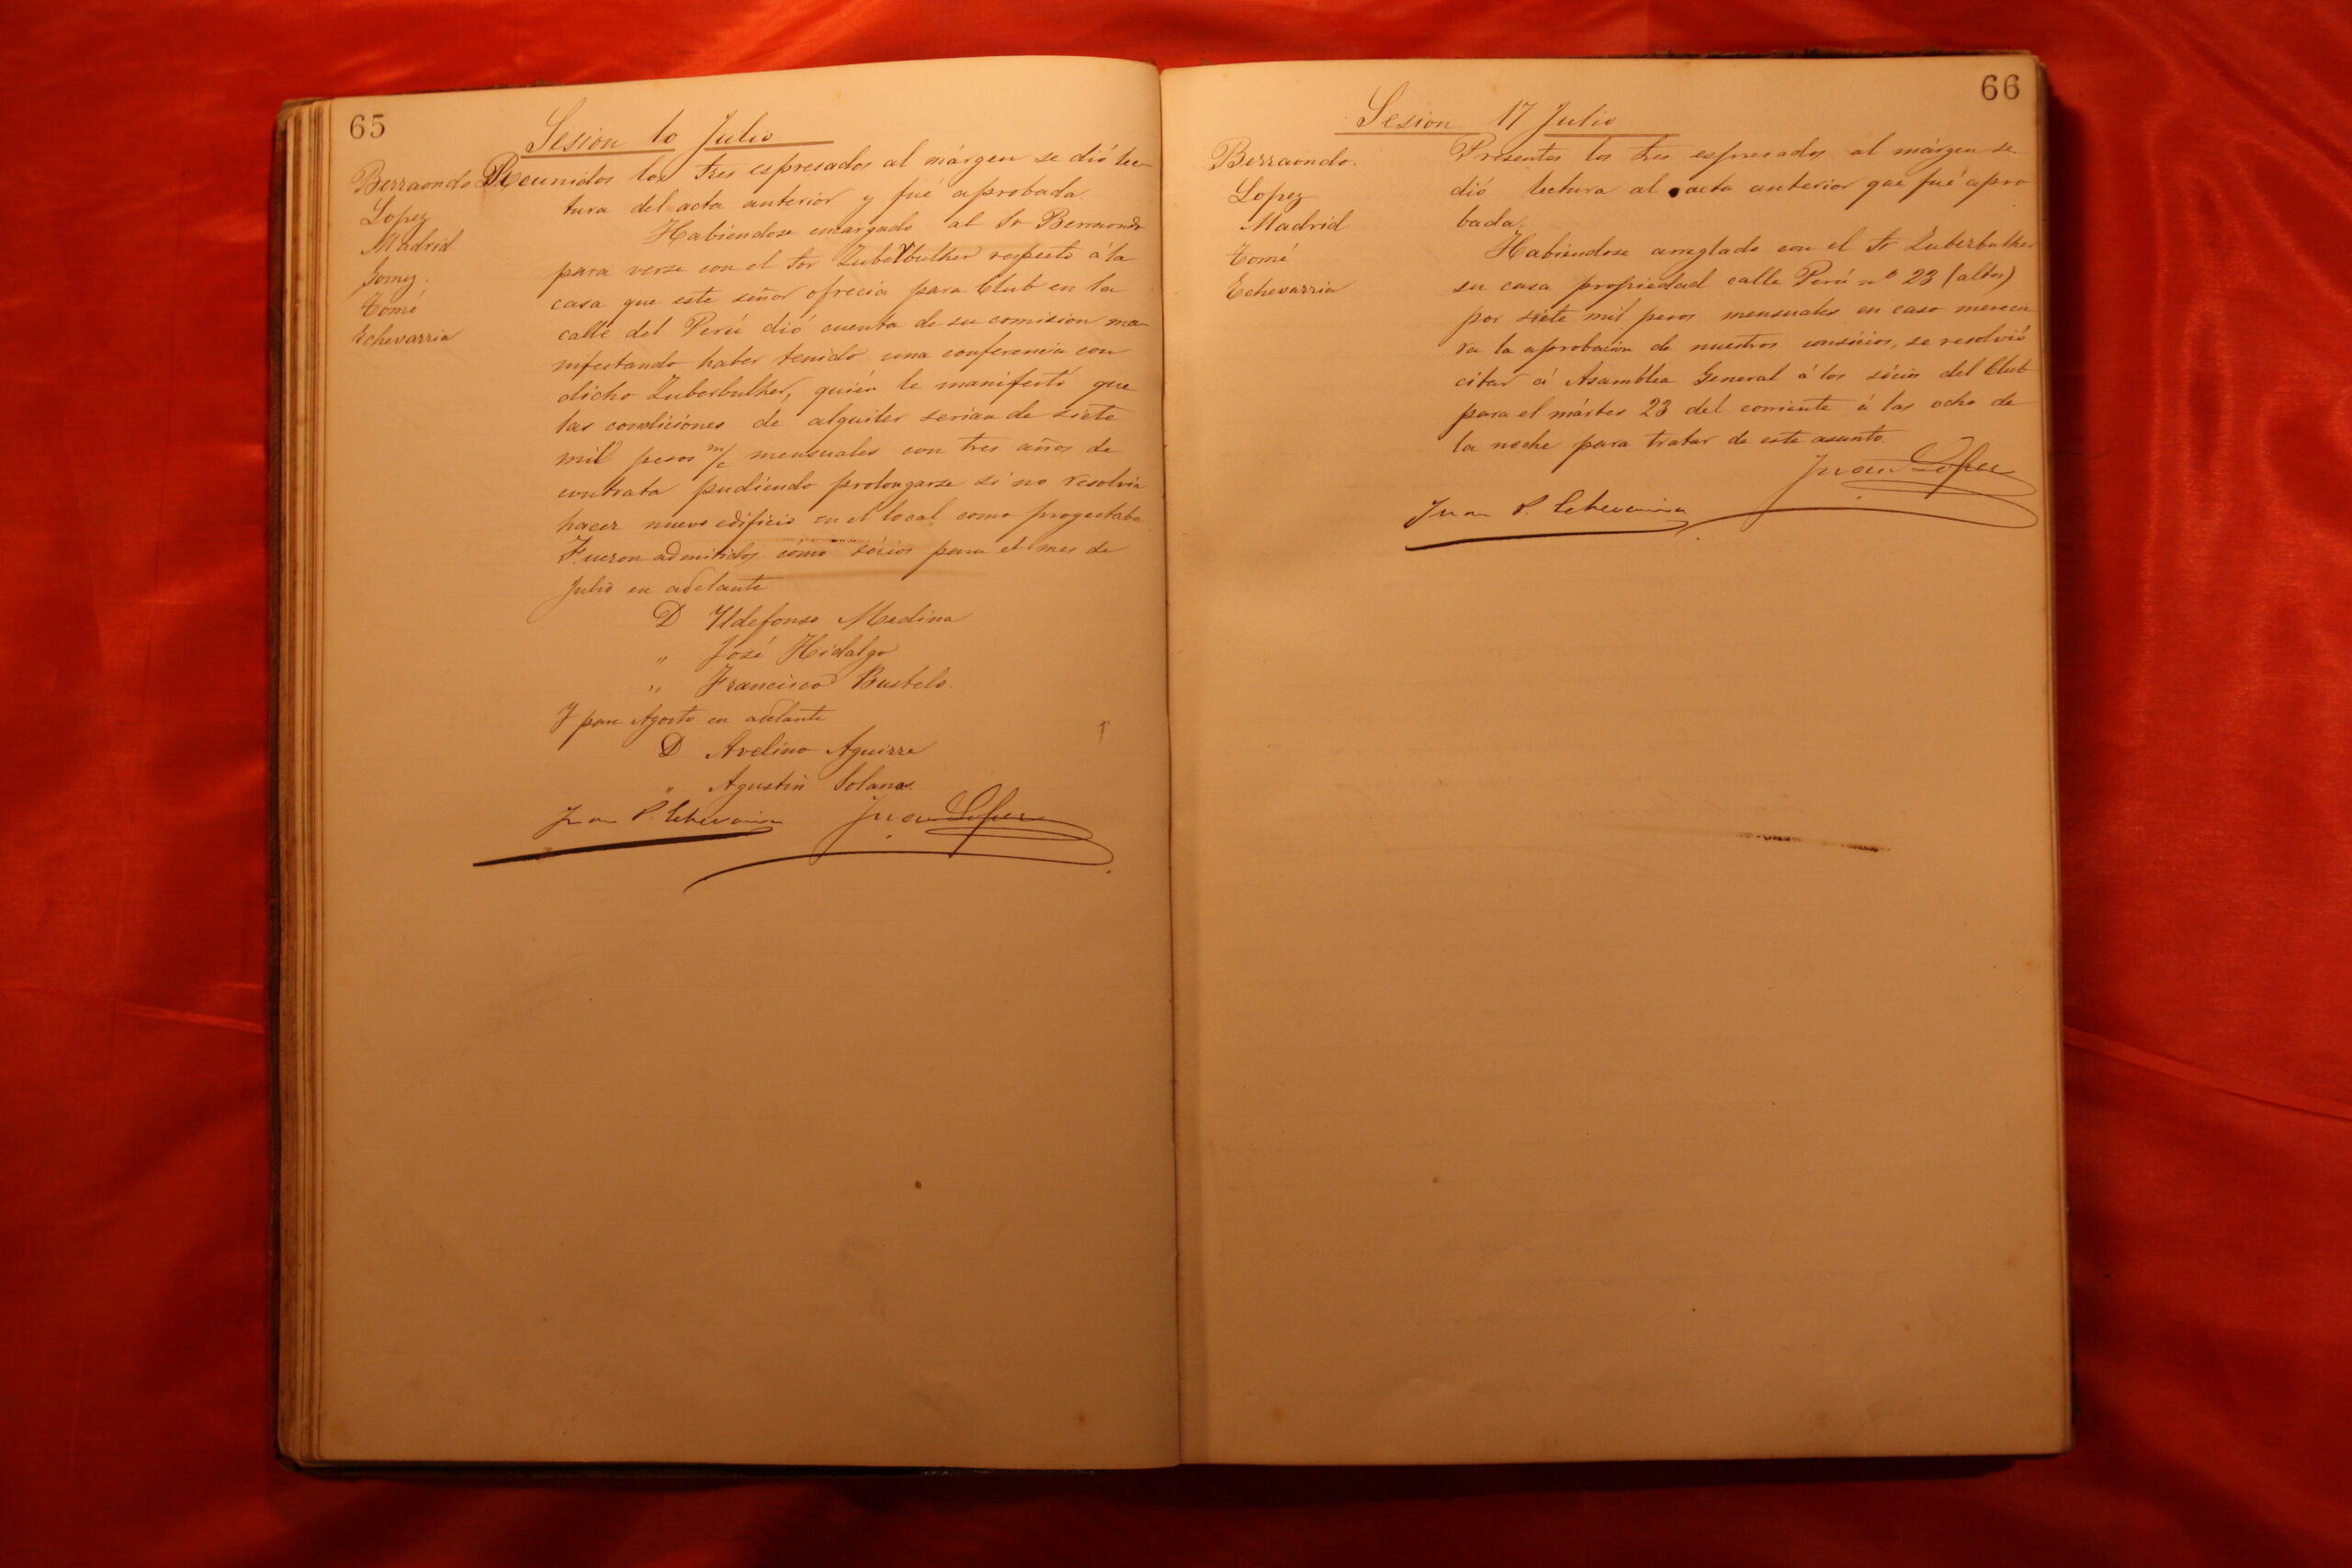 65
Sesion 10 Julio
Berraondo
Lopez
Madrid
Gomez.
Tomé
Echevarria
Reunidos los tres espresados al márgen se dió lec-
tura del acta anterior y fué aprobada
Habiendose encargado al Sr Berraondo
para verse con el Sor Zuberbulher respecto á la
casa que este señor ofrecia para Club en la
calle del Perú dió cuenta de su comision ma-
nifestando haber tenido una conferencia con
dicho Zuberbulher, quién le manifestó que
las condiciones de alquiler serian de siete
mil pesos m/c mensuales con tres años de
contrata pudiendo prolongarse si no resolvia
hacer nuevo edificio en el local como proyectaba.
Fueron admitidos cómo sócios para el mes de
Julio en adelante
D Ildefonso Medina
" José Hidalgo
" Francisco Bustelo.
Y para Agosto en adelante
D Avelino Aguirre
" Agustin Solanas.
Juan P. Echevarria Juan Lopez
66
Sesion 17 Julio
Berraondo.
Lopez
Madrid
Tomé
Echevarria
Presentes los tres espresados al márgen se
dió lectura al acta anterior que fué apro
bada.
Habiendose arreglado con el Sr Zuberbulher
su casa propiedad calle Perú nº 23 (altos)
por siete mil pesos mensuales en caso merecie
ra la aprobacion de nuestros consócios, se resolvió
citar á Asamblea General á los sócios del Club
para el mártes 23 del corriente á las ocho de
la noche para tratar de este asunto.
Juan Lopez
Juan P. Echevarria